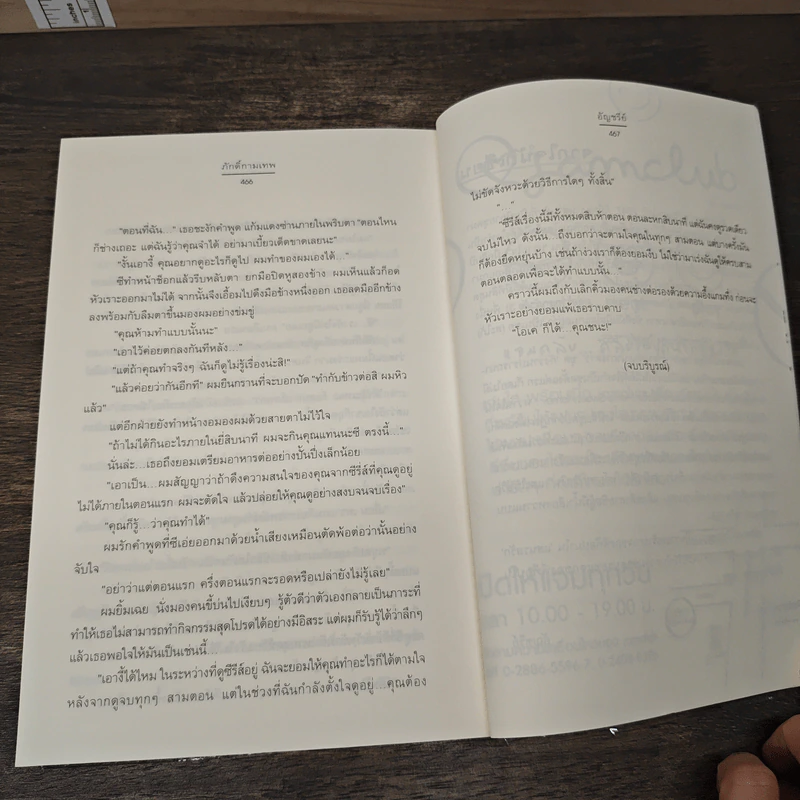 INCHES
1
ภักดิ์กามเทพ
466
"ตอนที่ฉัน..." เธอชะงักคำพูด แก้มแดงซ่านภายในพริบตา "ตอนไหน
ก็ช่างเถอะ แต่ฉันรู้ว่าคุณจำได้ อย่ามาเบี้ยวเด็ดขาดเลยนะ"
"งั้นเอางี้ คุณอยากดูอะไรก็ดูไป ผมทำของผมเองได้..."
ซีทำหน้าช็อกแล้วรีบหลับตา ยกมือปิดหูสองข้าง ผมเห็นแล้วก็อด
หัวเราะออกมาไม่ได้ จากนั้นจึงเอื้อมไปดึงมือข้างหนึ่งออก เธอลดมืออีกข้าง
ลงพร้อมกับลืมตาขึ้นมองผมอย่างข่มขู่
"คุณห้ามทำแบบนั้นนะ"
"เอาไว้ค่อยตกลงกันทีหลัง..."
"แต่ถ้าคุณทำจริงๆ ฉันก็ดูไม่รู้เรื่องน่ะสิ!"
"แล้วค่อยว่ากันอีกที" ผมยืนกรานที่จะบอกปัด "ทำกับข้าวต่อสิ ผมหิว
แล้ว"
แต่อีกฝ่ายยังทำหน้างอมองผมด้วยสายตาไม่ไว้ใจ
"ถ้าไม่ได้กินอะไรภายในยี่สิบนาที ผมจะกินคุณแทนนะซี ตรงนี้..."
นั่นล่ะ...เธอถึงยอมเตรียมอาหารต่ออย่างปั้นปึ่งเล็กน้อย
"เอาเป็น...ผมสัญญาว่าถ้าดึงความสนใจของคุณจากซีรีส์ที่คุณดูอยู่
ไม่ได้ภายในตอนแรก ผมจะตัดใจ แล้วปล่อยให้คุณดูอย่างสงบจนจบเรื่อง"
"คุณก็รู้...ว่าคุณทำได้"
ผมรักคำพูดที่ซีเอ่ยออกมาด้วยน้ำเสียงเหมือนตัดพ้อต่อว่านั้นอย่าง
จับใจ
"อย่าว่าแต่ตอนแรก ครึ่งตอนแรกจะรอดหรือเปล่ายังไม่รู้เลย"
ผมยิ้มเฉย นั่งมองคนขี้บ่นไปเงียบๆ รู้ตัวดีว่าตัวเองกลายเป็นภาระที่
ทำให้เธอไม่สามารถทำกิจกรรมสุดโปรดได้อย่างมีอิสระ แต่ผมก็รับรู้ได้ว่าลึกๆ
แล้วเธอพอใจให้มันเป็นเช่นนี้...
"เอางี้ได้ไหม ในระหว่างที่ดูซีรีส์อยู่ ฉันจะยอมให้คุณทำอะไรก็ได้ตามใจ
หลังจากดูจบทุกๆ สามตอน แต่ในช่วงที่ฉันกำลังตั้งใจดูอยู่...คุณต้อง
อัญชรีย์
467
ไม่ขัดจังหวะด้วยวิธีการใดๆ ทั้งสิ้น"
"..."
"ซีรีส์เรื่องนี้มีทั้งหมดสิบห้าตอน ตอนละหกสิบนาที แต่ฉันคงดูรวดเดียว
จบไม่ไหว ดังนั้น...ถึงบอกว่าจะตามใจคุณในทุกๆ สามตอน แต่บางครั้งมัน
ก็ต้องยืดหยุ่นบ้าง เช่นถ้าง่วงเราก็ต้องยอมงีบ ไม่ใช่ว่ามาเร่งฉันดูให้ครบสาม
ตอนตลอดเพื่อจะได้ทำแบบนั้น..."
คราวนี้ผมถึงกับเลิกคิ้วมองคนช่างต่อรองด้วยความอึ้งแกมทึ่ง ก่อนจะ
หัวเราะอย่างยอมแพ้เธอราบคาบ
"โอเค ก็ได้...คุณชนะ!"
(จบบริบูรณ์)